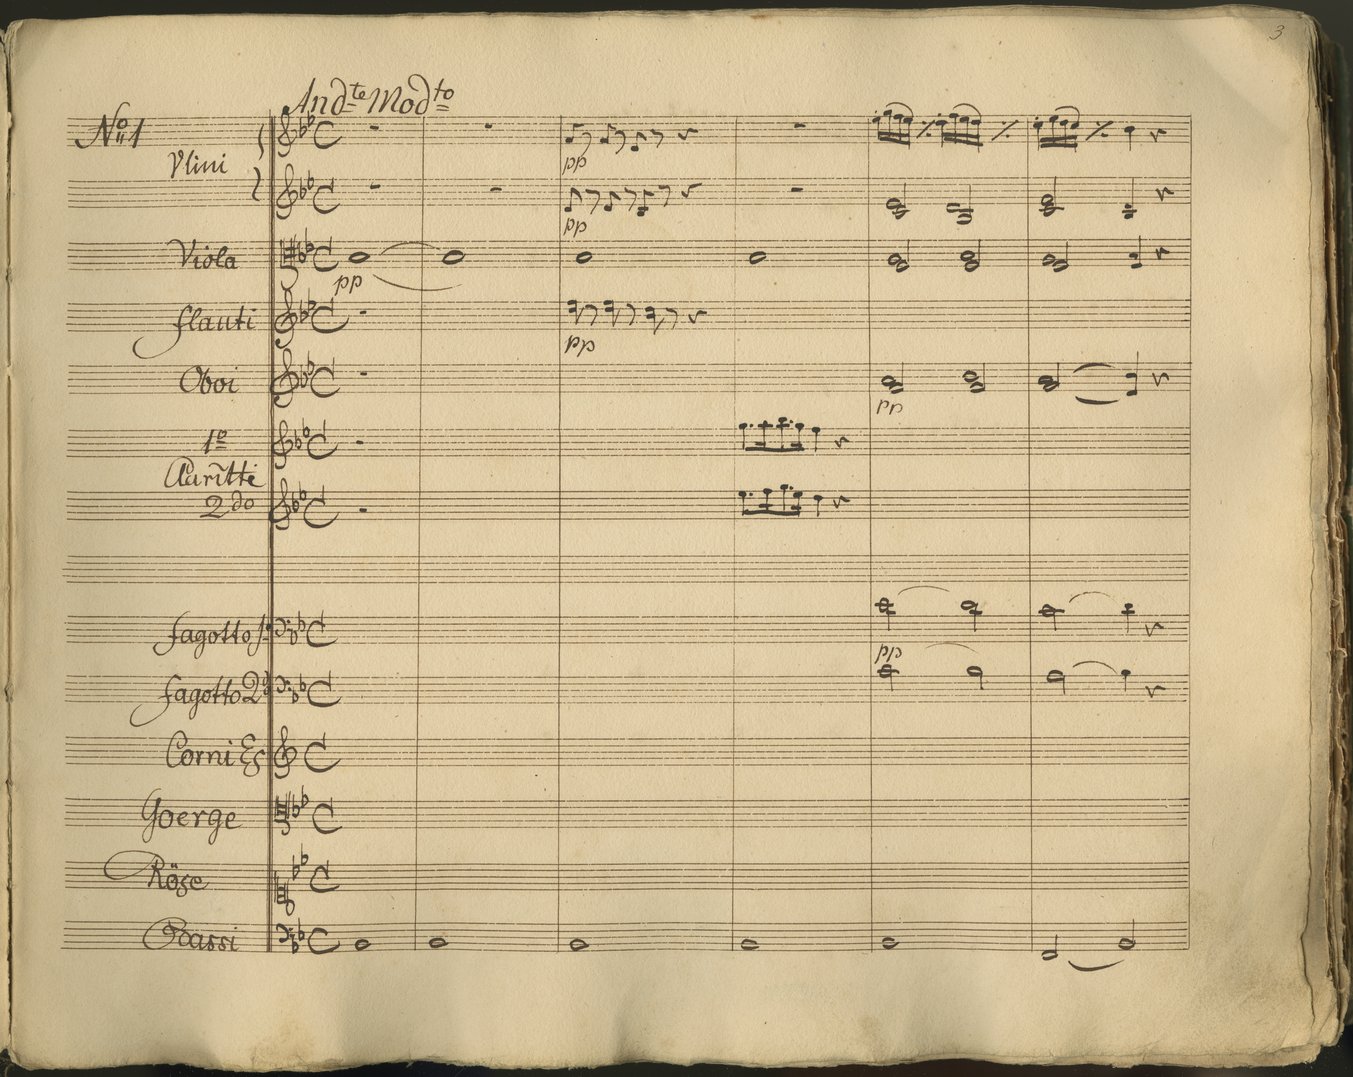 3
And.te Mod.to
No. 1
Vlini
pp
pp
Viola
pp
flauti
pp
Oboi
pp
1º
2do
fagotto 1º
pp
fagotto 2º
Corni Es
Goerge
Röse
Bassi